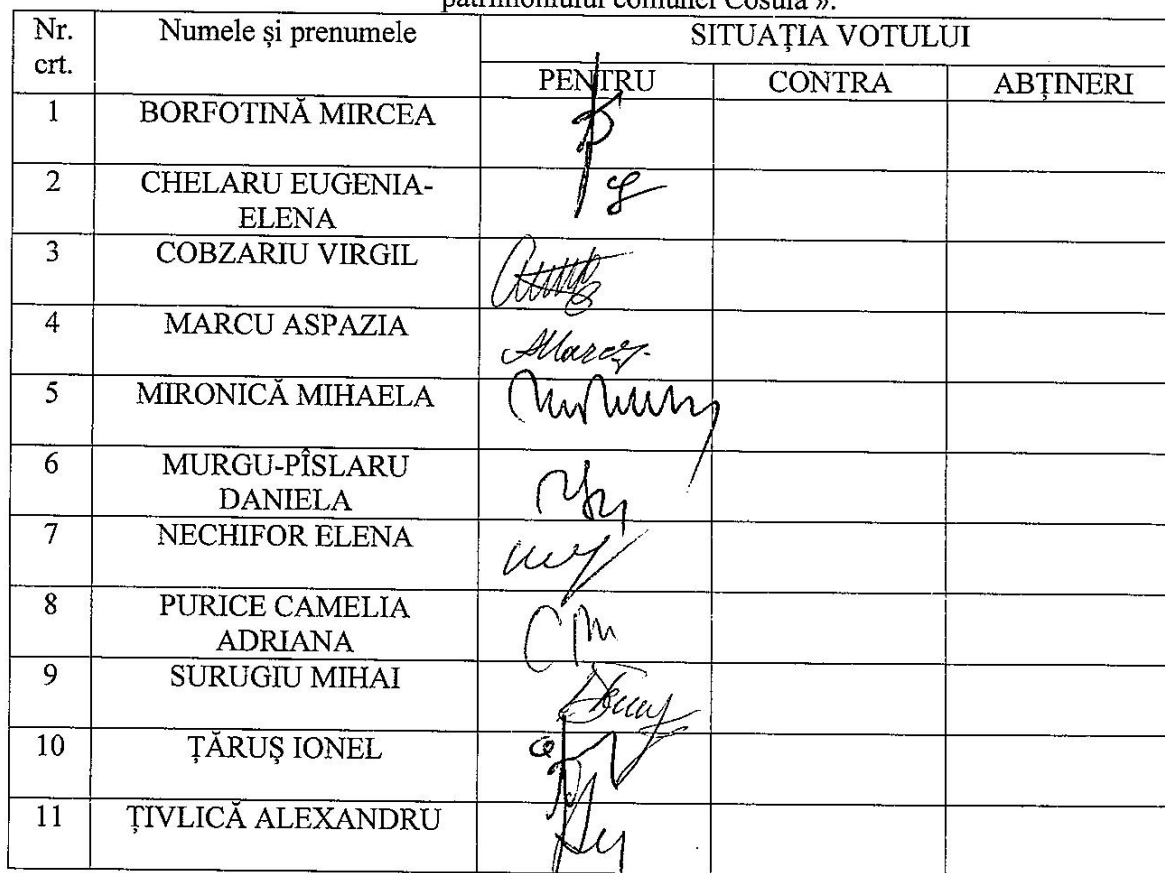 patrimoniului comunei Coșula ».
Nr. crt. Numele și prenumele SITUAȚIA VOTULUI
PENTRU CONTRA ABȚINERI
1 BORFOTINĂ MIRCEA
2 CHELARU EUGENIA-
ELENA
3 COBZARIU VIRGIL
4 MARCU ASPAZIA
AMarcu
5 MIRONICĂ MIHAELA
6 MURGU-PÎSLARU
DANIELA
7 NECHIFOR ELENA
8 PURICE CAMELIA
ADRIANA
9 SURUGIU MIHAI
10 ȚĂRUȘ IONEL
11 ȚIVLICĂ ALEXANDRU